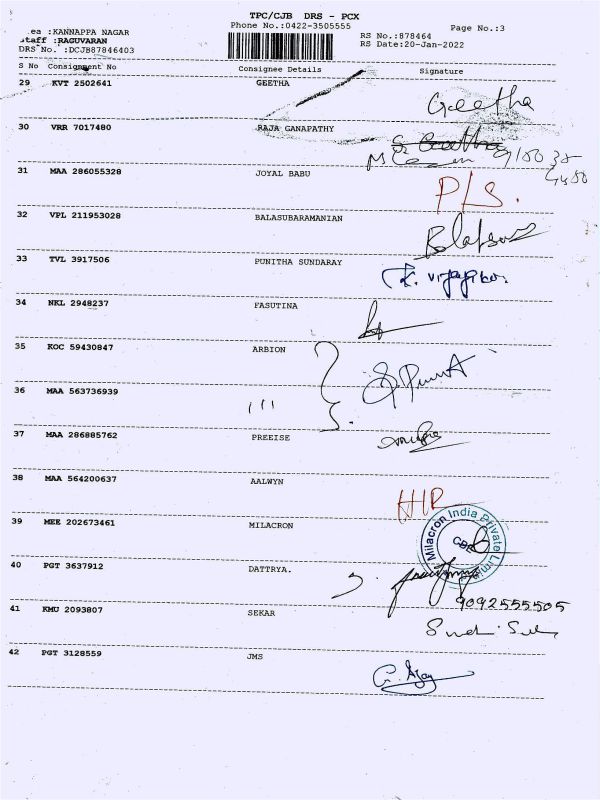 TPC/CJB DRS - PCX
Phone No.:0422-3505555
Page No.:3
ea :KANNAPPA NAGAR
Staff :RAGUVARAN
DRS No. :DCJB87846403
RS No.:878464
RS Date:20-Jan-2022
S No Consignment No Consignee Details Signature
29 KVT 2502641 GEETHA Geetha
30 VRR 7017480 RAJA GANAPATHY
31 MAA 286055328 JOYAL BABU P/S.
32 VPL 211953028 BALASUBARAMANIAN
33 TVL 3917506 PUNITHA SUNDARAY
34 NKL 2948237 FASUTINA
35 KOC 59430847 ARBION
36 MAA 563736939 ,,,
37 MAA 286885762 PREEISE
38 MAA 564200637 AALWYN
39 MEE 202673461 MILACRON
Milacron India Private Limited
CBE
40 PGT 3637912 DATTRYA.
9092555505
41 KMU 2093807 SEKAR
42 PGT 3128559 JMS G. Ajay